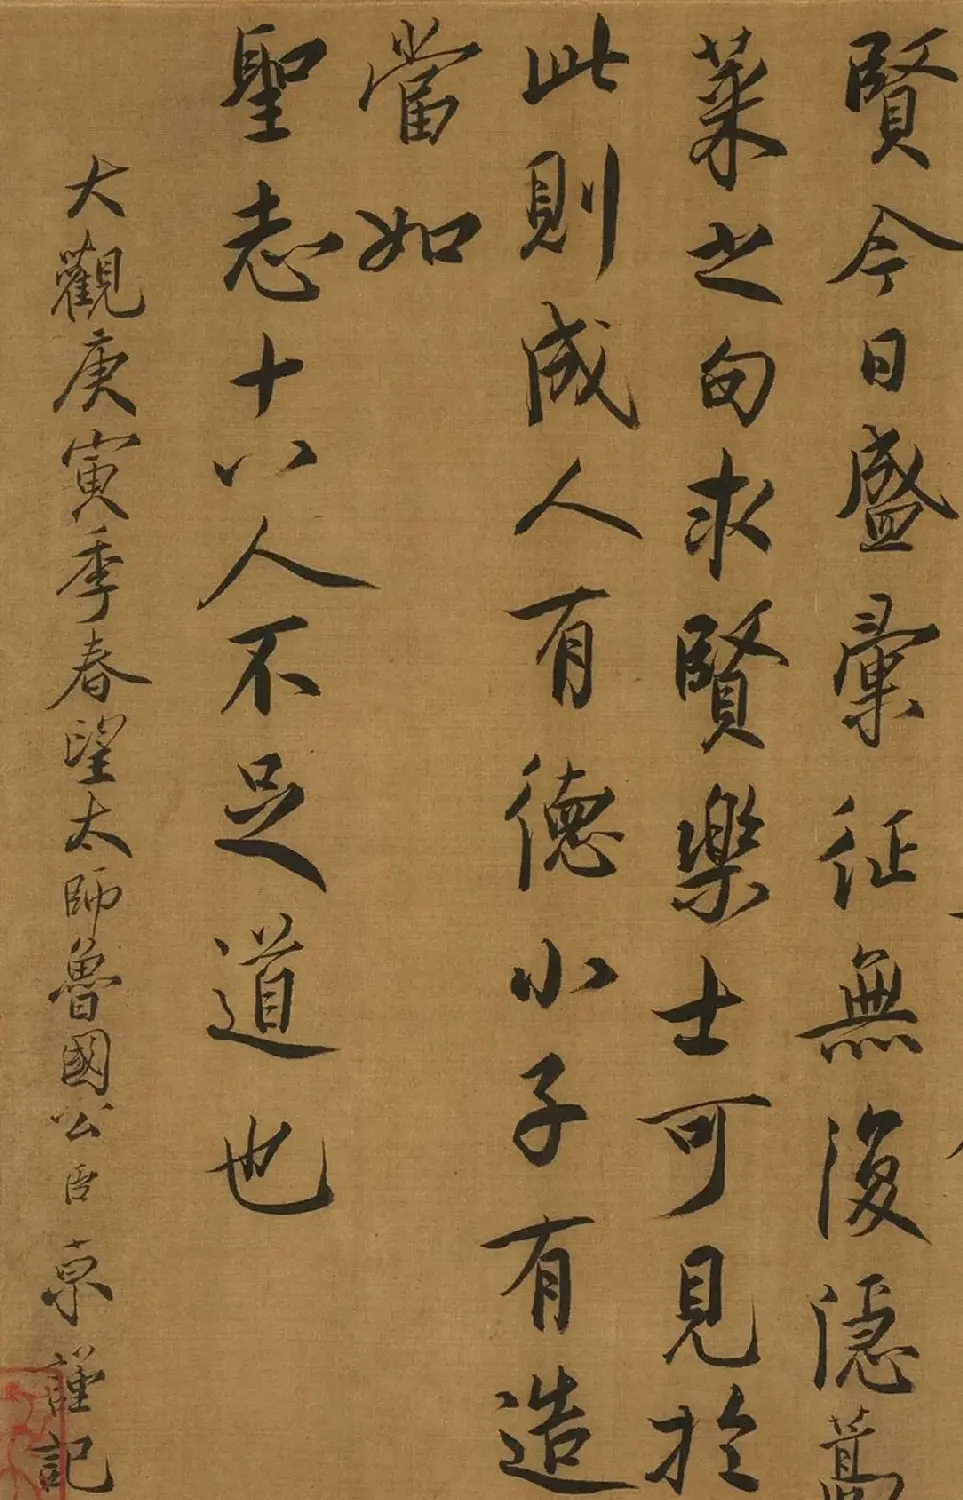 賢今日盛彙征無復隱蒿
菜之句求賢樂士可見於
此則成人有德小子有造
當如
聖志十八人不足道也
大觀庚寅季春望太師魯國公臣京謹記